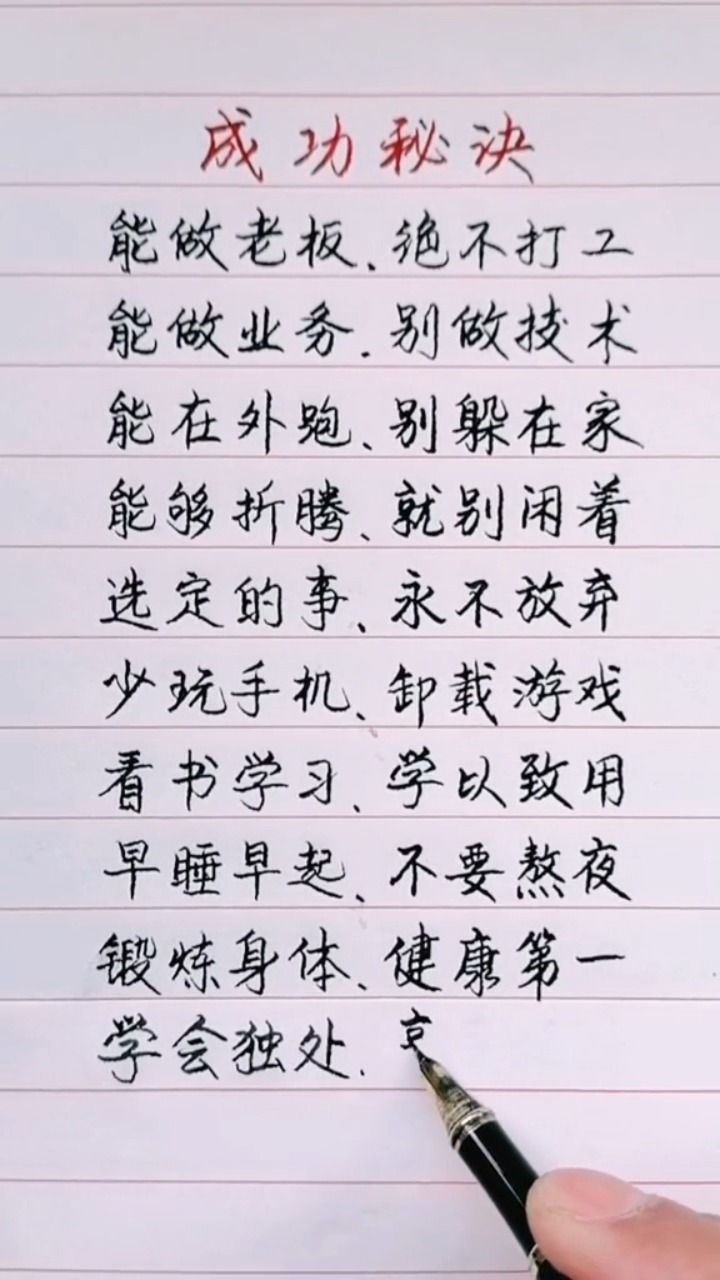 成功秘诀
能做老板、绝不打工
能做业务、别做技术
能在外跑、别躲在家
能够折腾、就别闲着
选定的事、永不放弃
少玩手机、卸载游戏
看书学习、学以致用
早睡早起、不要熬夜
锻炼身体、健康第一
学会独处、